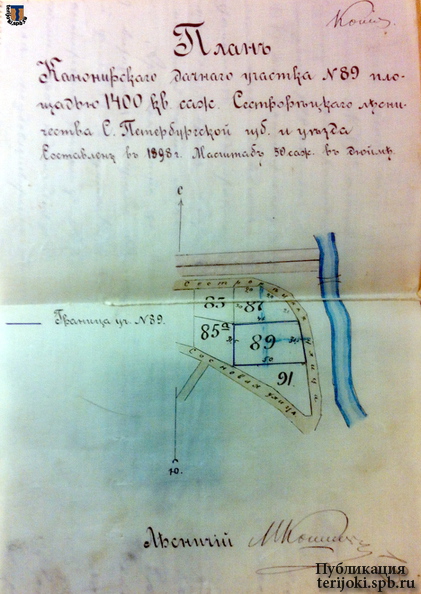 Копія
Планъ
Канонирскаго дачнаго участка N 89 пло-
щадью 1400 кв. саж. Сестрорѣцкаго лѣсни-
чества С. Петербургской губ. и уѣзда
Составленъ въ 1898 г. Масштабъ 50 саж. въ дюймѣ.
с
83 87
85а 89
50
91
Граница уч. N 89.
Сосновая улица
ю.
Лѣсничій
Публикация
terijoki.spb.ru